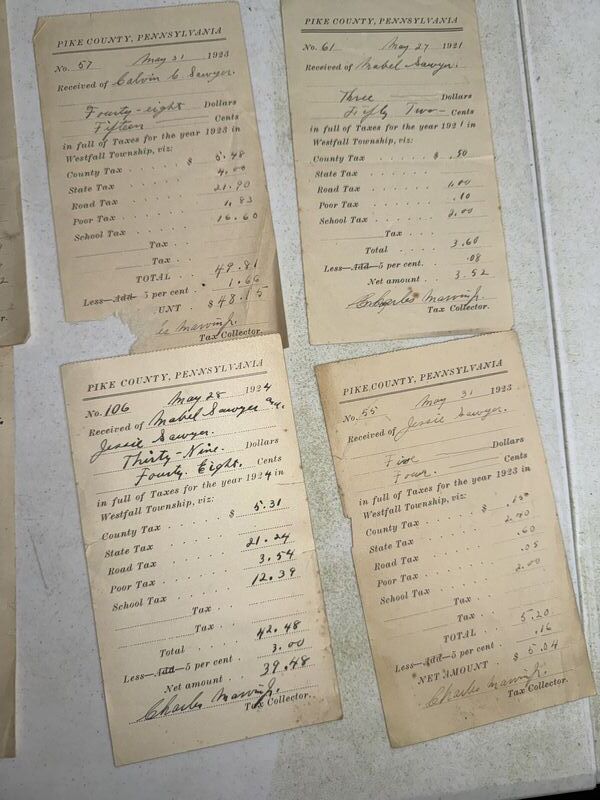 PIKE COUNTY, PENNSYLVANIA
No. 57 May 31 1923
Received of Calvin C. Sawyer.
Fourty-eight Dollars
Fifteen Cents
in full of Taxes for the year 1923 in
Westfall Township, viz:
County Tax $ 5.48
State Tax 4.00
Road Tax 21.90
Poor Tax 1.83
School Tax 16.60
Tax
Tax
TOTAL 49.81
Less—Add—5 per cent. 1.66
UNT $48.15
Marvin Jr.
Tax Collector.
PIKE COUNTY, PENNSYLVANIA
No. 61 May 27 1921
Received of Mabel Sawyer.
Three Dollars
Fifty Two Cents
in full of Taxes for the year 1921 in
Westfall Township, viz:
County Tax $ .50
State Tax
Road Tax 1.00
Poor Tax .10
School Tax 2.00
Tax
Total 3.60
Less—Add—5 per cent. .08
Net amount 3.52
Charles Marvin Jr.
Tax Collector.
PIKE COUNTY, PENNSYLVANIA
No. 106 May 28 1924
Received of Mabel Sawyer
Jessie Sawyer.
Thirty-Nine. Dollars
Fourty. Eight. Cents
in full of Taxes for the year 1924 in
Westfall Township, viz:
County Tax $ 5.31
State Tax
Road Tax 21.24
Poor Tax 3.54
School Tax 12.39
Tax
Tax
Total 42.48
Less—Add—5 per cent. 3.00
Net amount 39.48
Charles Marvin Jr.
Tax Collector.
PIKE COUNTY, PENNSYLVANIA
No. 55 May 31 1923
Received of Jessie Sawyer.
Five Dollars
Four Cents
in full of Taxes for the year 1923 in
Westfall Township, viz:
County Tax $
State Tax 2.00
Road Tax .60
Poor Tax .05
School Tax 2.00
Tax
Tax
TOTAL 5.20
Less—Add—5 per cent. .16
NET AMOUNT $ 5.04
Charles Marvin Jr.
Tax Collector.